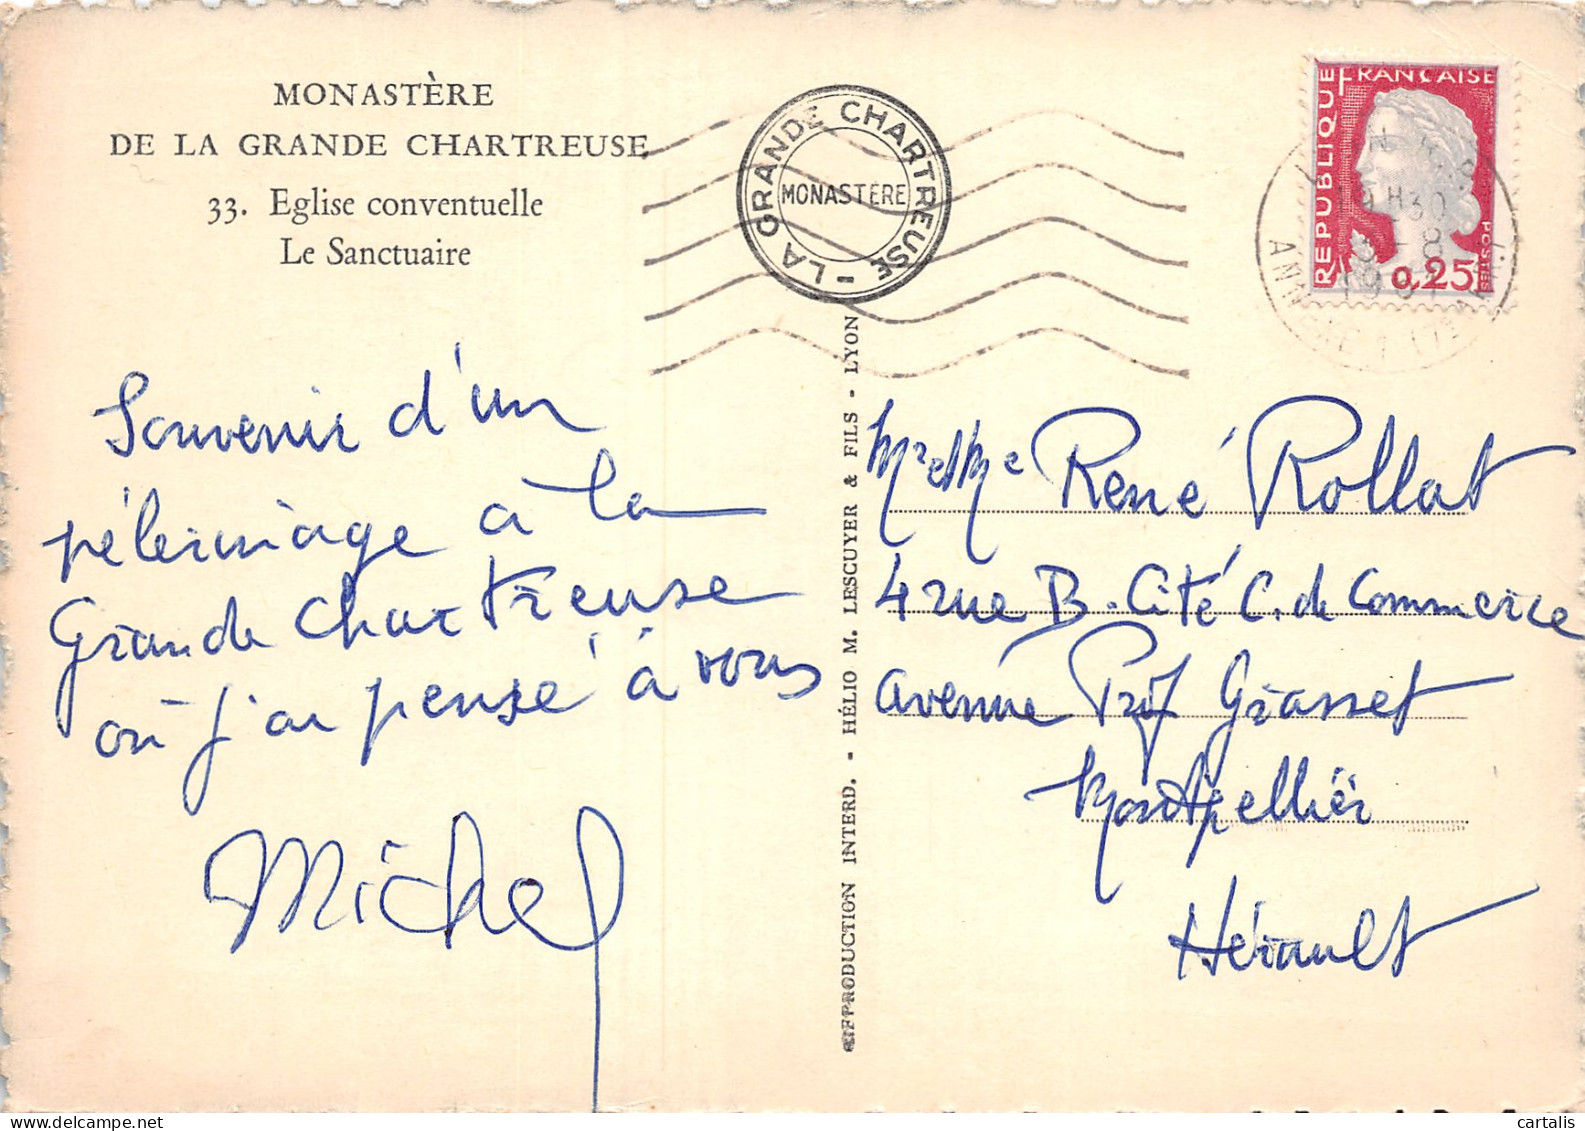 MONASTÈRE
DE LA GRANDE CHARTREUSE
33. Eglise conventuelle
Le Sanctuaire
LA GRANDE CHARTREUSE -
MONASTÈRE
RÉPUBLIQUE FRANÇAISE
POSTES
0,25
19H30
8
ANNEXE 1
Souvenir d'un
pélerinage à la
Grande Chartreuse
où j'ai pensé à vous
Michel
REPRODUCTION INTERD. - HÉLIO M. LESCUYER & FILS - LYON
Mr et Mme René Rollat
4 rue B. Cité C. de Commerce
avenue Prof Grasset
Montpellier
Hérault
cartalis